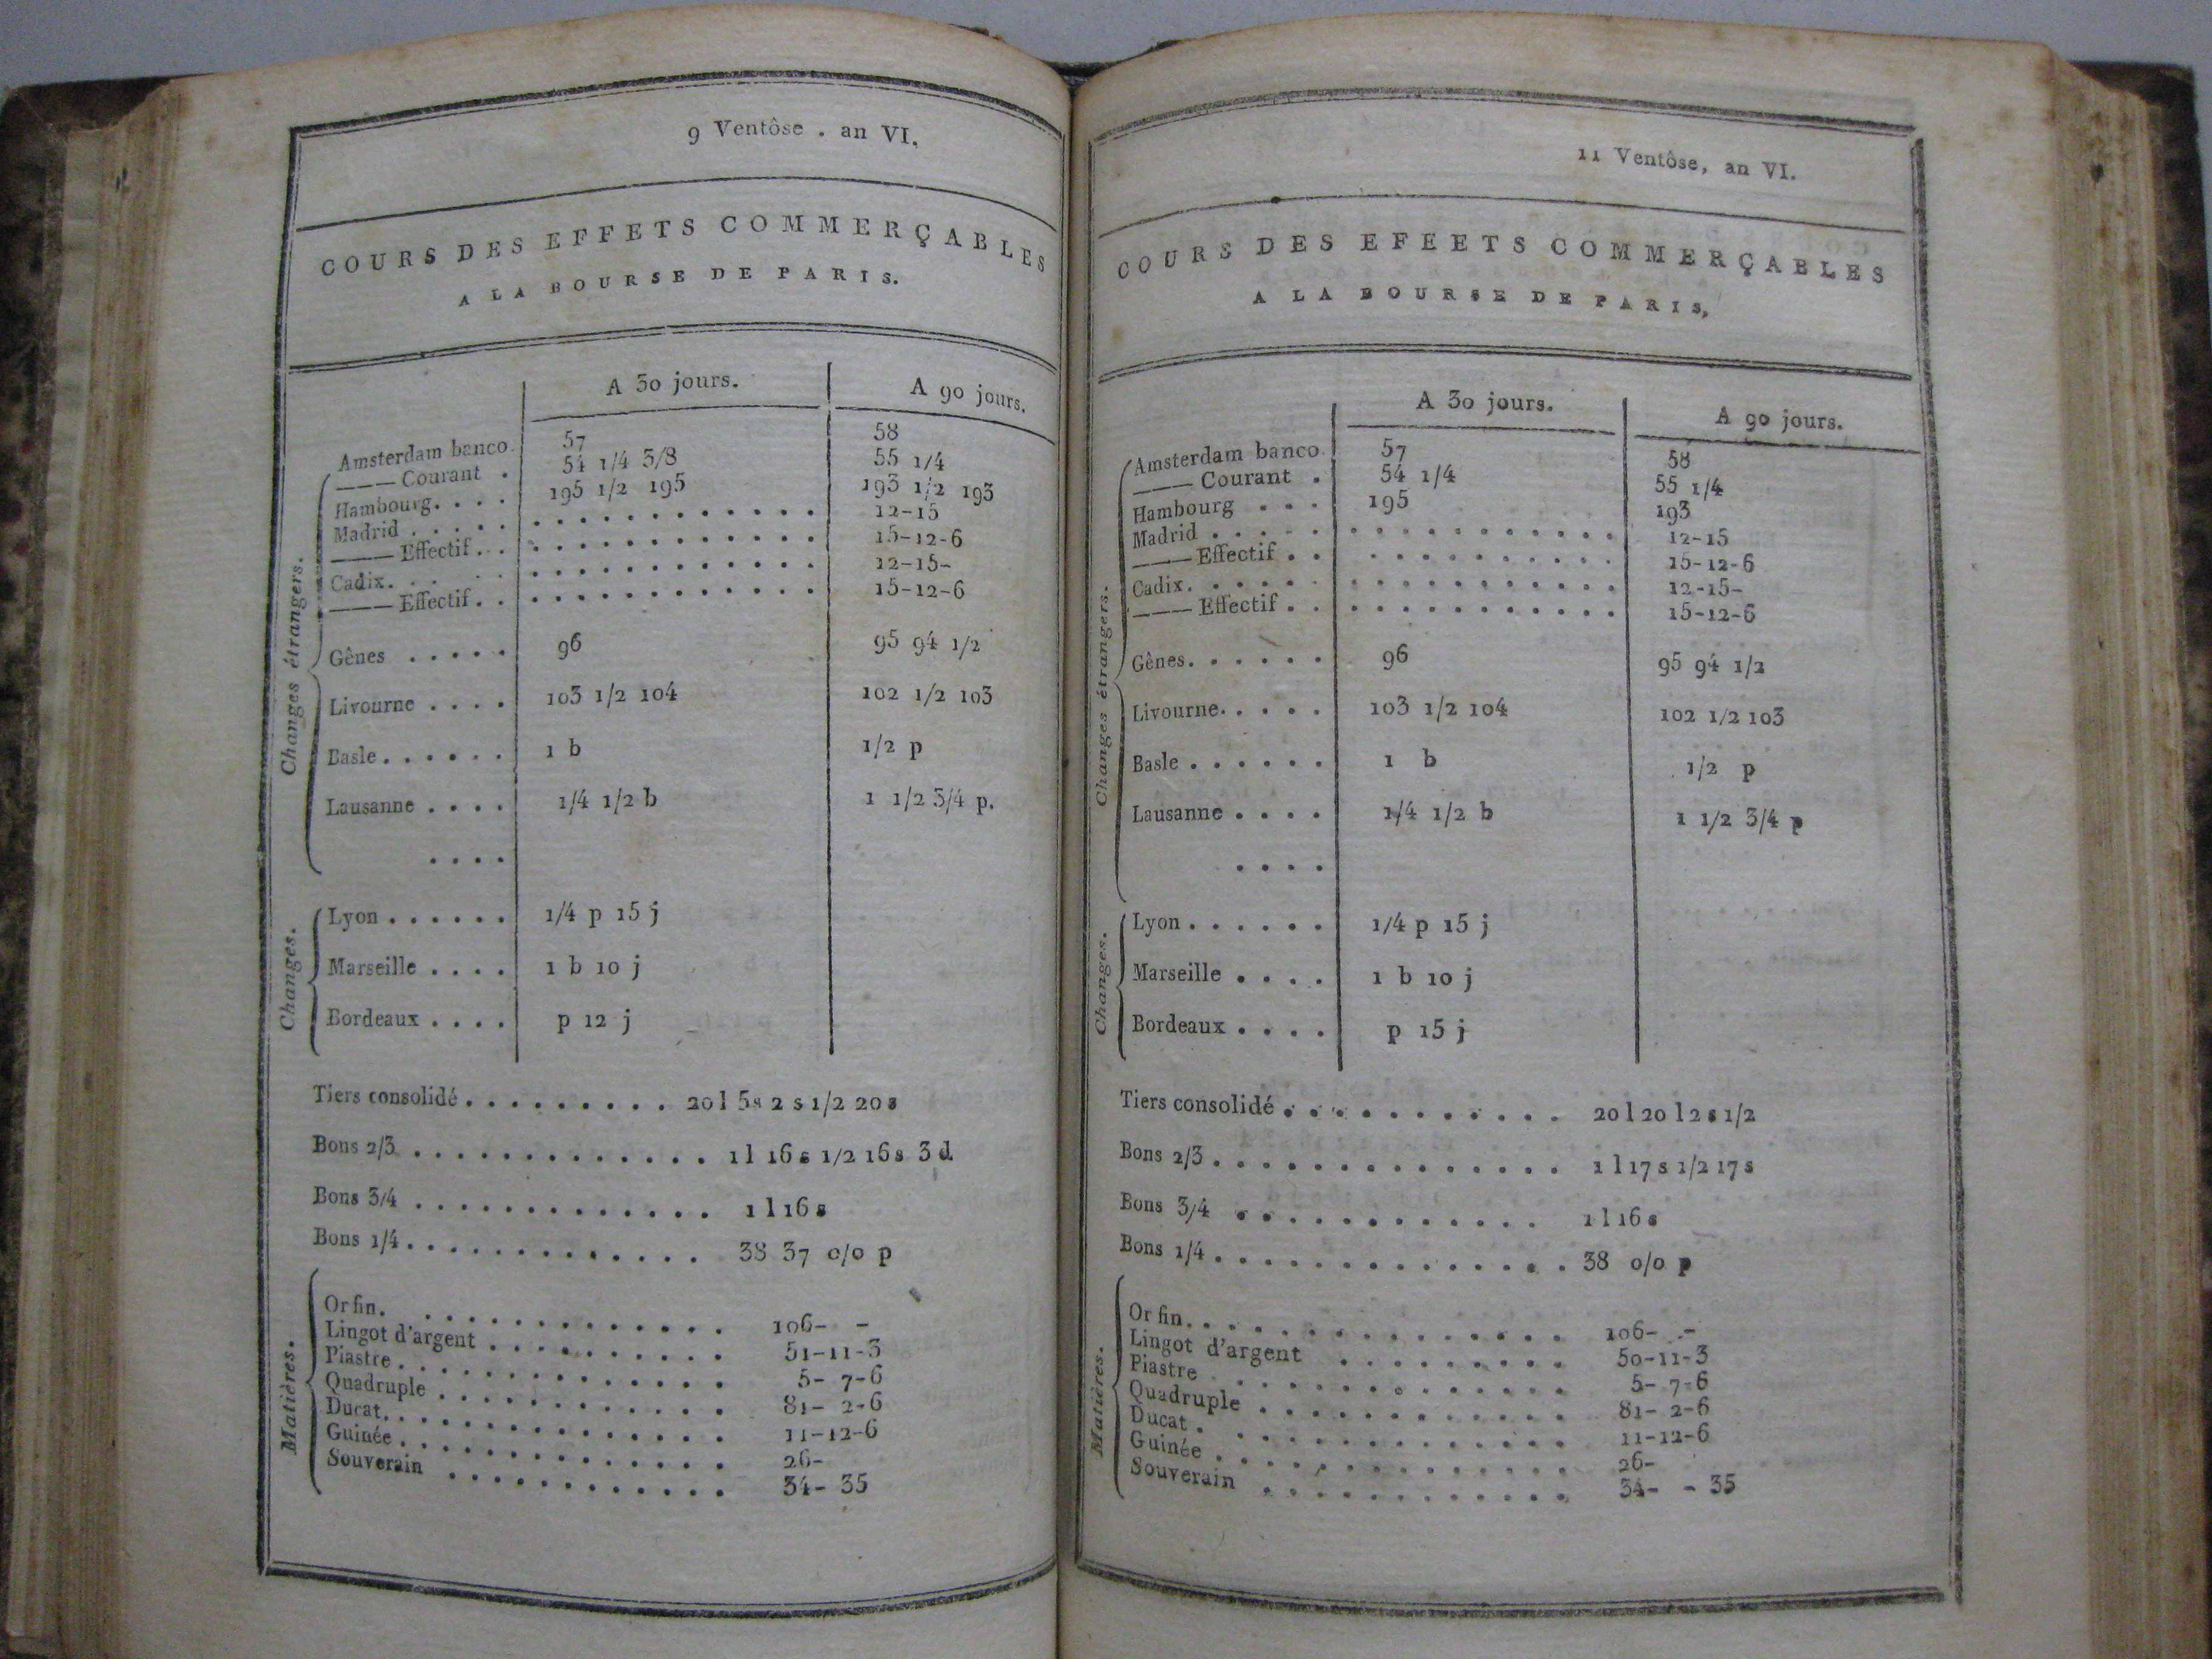 9 Ventôse . an VI.
COURS DES EFFETS COMMERÇABLES
A LA BOURSE DE PARIS.
A 30 jours. A 90 jours.
Changes étrangers.
Amsterdam banco. 57 58
——— Courant . 54 1/4 3/8 55 1/4
Hambourg. . . . 195 1/2 195 193 1/2 193
Madrid . . . . . . . . . . . . . . . . . 12-15
——— Effectif . . . . . . . . . . . . . . . 15-12-6
Cadix. . . . . . . . . . . . . . . . . 12-15-
——— Effectif . . . . . . . . . . . . . . . 15-12-6
Gênes . . . . . 96 95 94 1/2
Livourne . . . . 103 1/2 104 102 1/2 103
Basle . . . . . . 1 b 1/2 p
Lausanne . . . . 1/4 1/2 b 1 1/2 3/4 p.
. . . .
Changes.
Lyon . . . . . . 1/4 p 15 j
Marseille . . . . 1 b 10 j
Bordeaux . . . . p 12 j
Tiers consolidé . . . . . . . . . 20 l 5 s 2 s 1/2 20 s
Bons 2/3 . . . . . . . . . . . . . 1 l 16 s 1/2 16 s 3 d.
Bons 3/4 . . . . . . . . . . . . . 1 l 16 s
Bons 1/4 . . . . . . . . . . . . . 38 37 o/o p
Matières.
Or fin. . . . . . . . . . . . . . 106- -
Lingot d'argent . . . . . . . . . . 51-11-3
Piastre . . . . . . . . . . . . . 5- 7-6
Quadruple . . . . . . . . . . . . 81- 2-6
Ducat. . . . . . . . . . . . . . 11-12-6
Guinée . . . . . . . . . . . . . 26-
Souverain . . . . . . . . . . . . 34- 35
11 Ventôse, an VI.
COURS DES EFEETS COMMERÇABLES
A LA BOURSE DE PARIS,
A 30 jours. A 90 jours.
Changes étrangers.
Amsterdam banco. 57 58
——— Courant . 54 1/4 55 1/4
Hambourg . . . 195 193
Madrid . . . . . . . . . . . . . . . . . 12-15
——— Effectif . . . . . . . . . . . . . 15-12-6
Cadix. . . . . . . . . . . . . . . . . 12-15-
——— Effectif . . . . . . . . . . . . . . 15-12-6
Gênes. . . . . . 96 95 94 1/2
Livourne. . . . . 103 1/2 104 102 1/2 103
Basle . . . . . . 1 b 1/2 p
Lausanne . . . . 1/4 1/2 b 1 1/2 3/4 p
. . . .
Changes.
Lyon . . . . . . 1/4 p 15 j
Marseille . . . . 1 b 10 j
Bordeaux . . . . p 15 j
Tiers consolidé . . . . . . . . . . . . 20 l 20 l 2 s 1/2
Bons 2/3 . . . . . . . . . . . . . . . 1 l 17 s 1/2 17 s
Bons 3/4 . . . . . . . . . . . . 1 l 16 s
Bons 1/4 . . . . . . . . . . . . . . . 38 o/o p
Matières.
Or fin. . . . . . . . . . . . . . . . 106- -
Lingot d'argent . . . . . . . . . 50-11-3
Piastre . . . . . . . . . . . . . 5- 7-6
Quadruple . . . . . . . . . . . . 81- 2-6
Ducat . . . . . . . . . . . . . . 11-12-6
Guinée . . . . . . . . . . . . . . 26-
Souverain . . . . . . . . . . . . 34- - 35